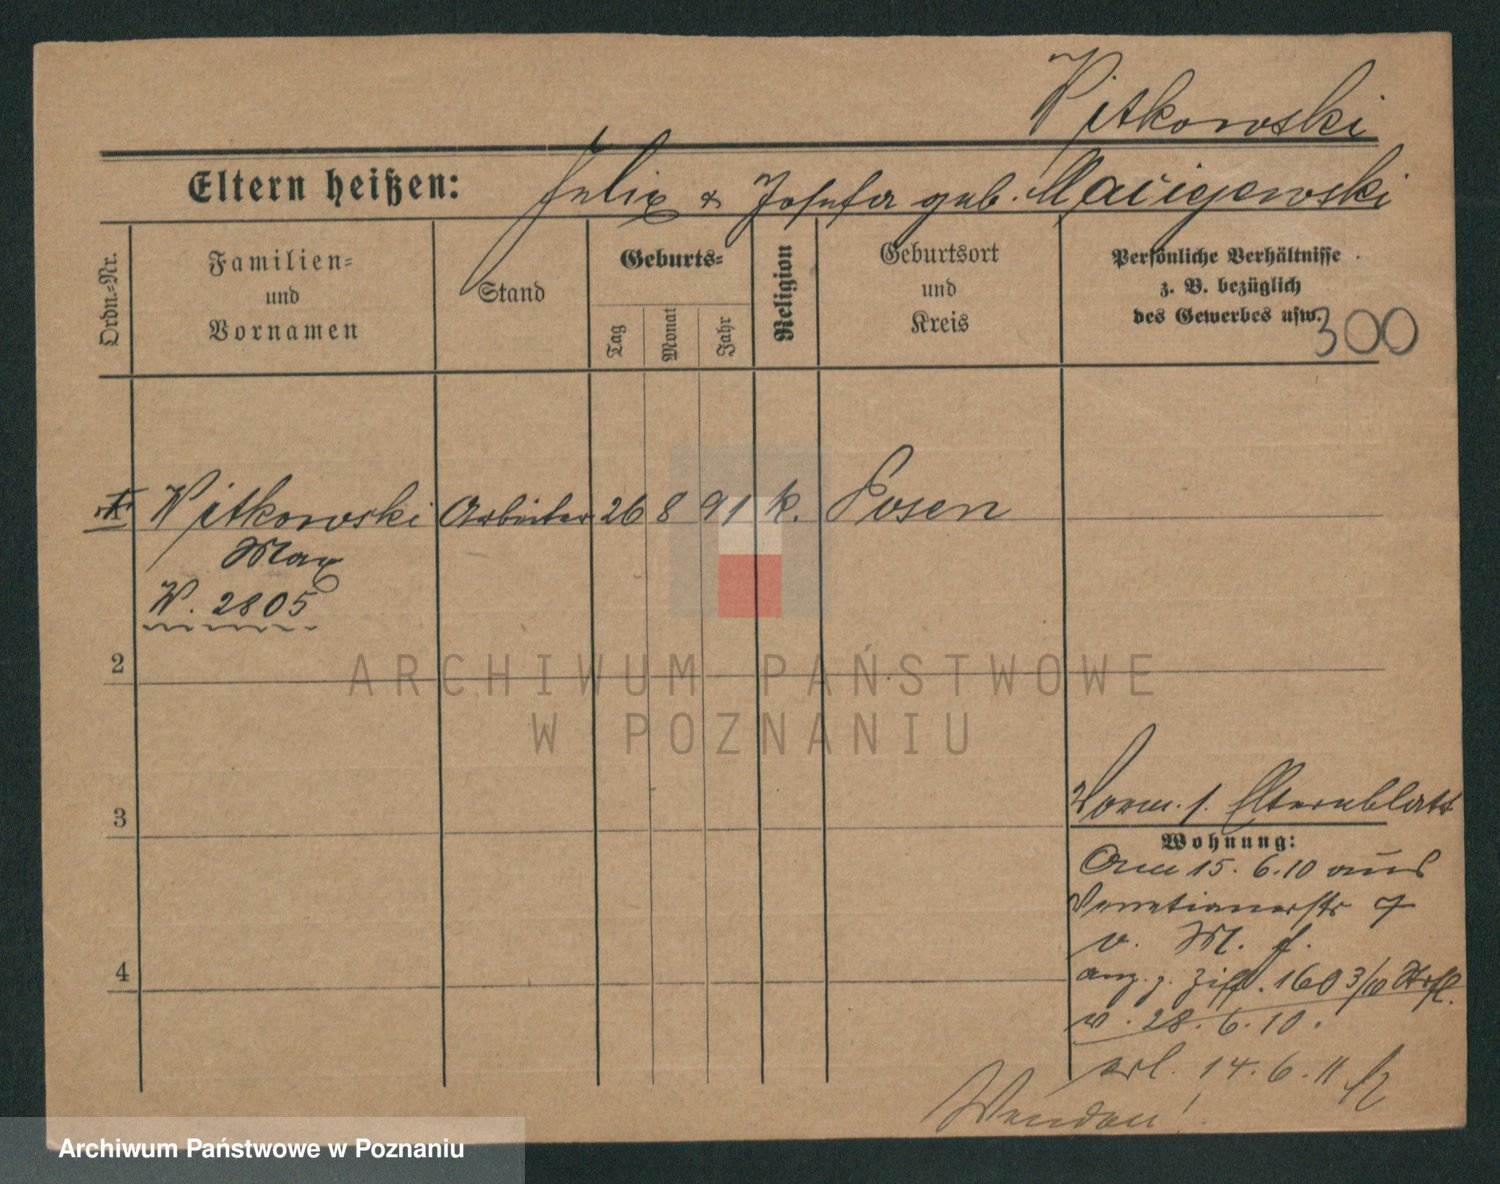 Witkowski
Eltern heißen: Felix & Josefa geb. Maciejewski
Ordn.-Nr.
Familien-
und
Vornamen
Stand
Geburts-
Tag
Monat
Jahr
Religion
Geburtsort
und
Kreis
Persönliche Verhältnisse
z. B. bezüglich
des Gewerbes usw.
300
Witkowski Arbeiter 26 8 91 k. Posen
Max
W. 2805
2
3
4
Vorm. s. Elternblatt
Wohnung:
Am 15. 6. 10 aus
Venetianerstr 7
v. M. f.
anz. z. Ziff. 1603/10
v. 28. 6. 10.
erl. 14. 6. 11
Wenden!
ARCHIWUM PAŃSTWOWE
W POZNANIU
Archiwum Państwowe w Poznaniu